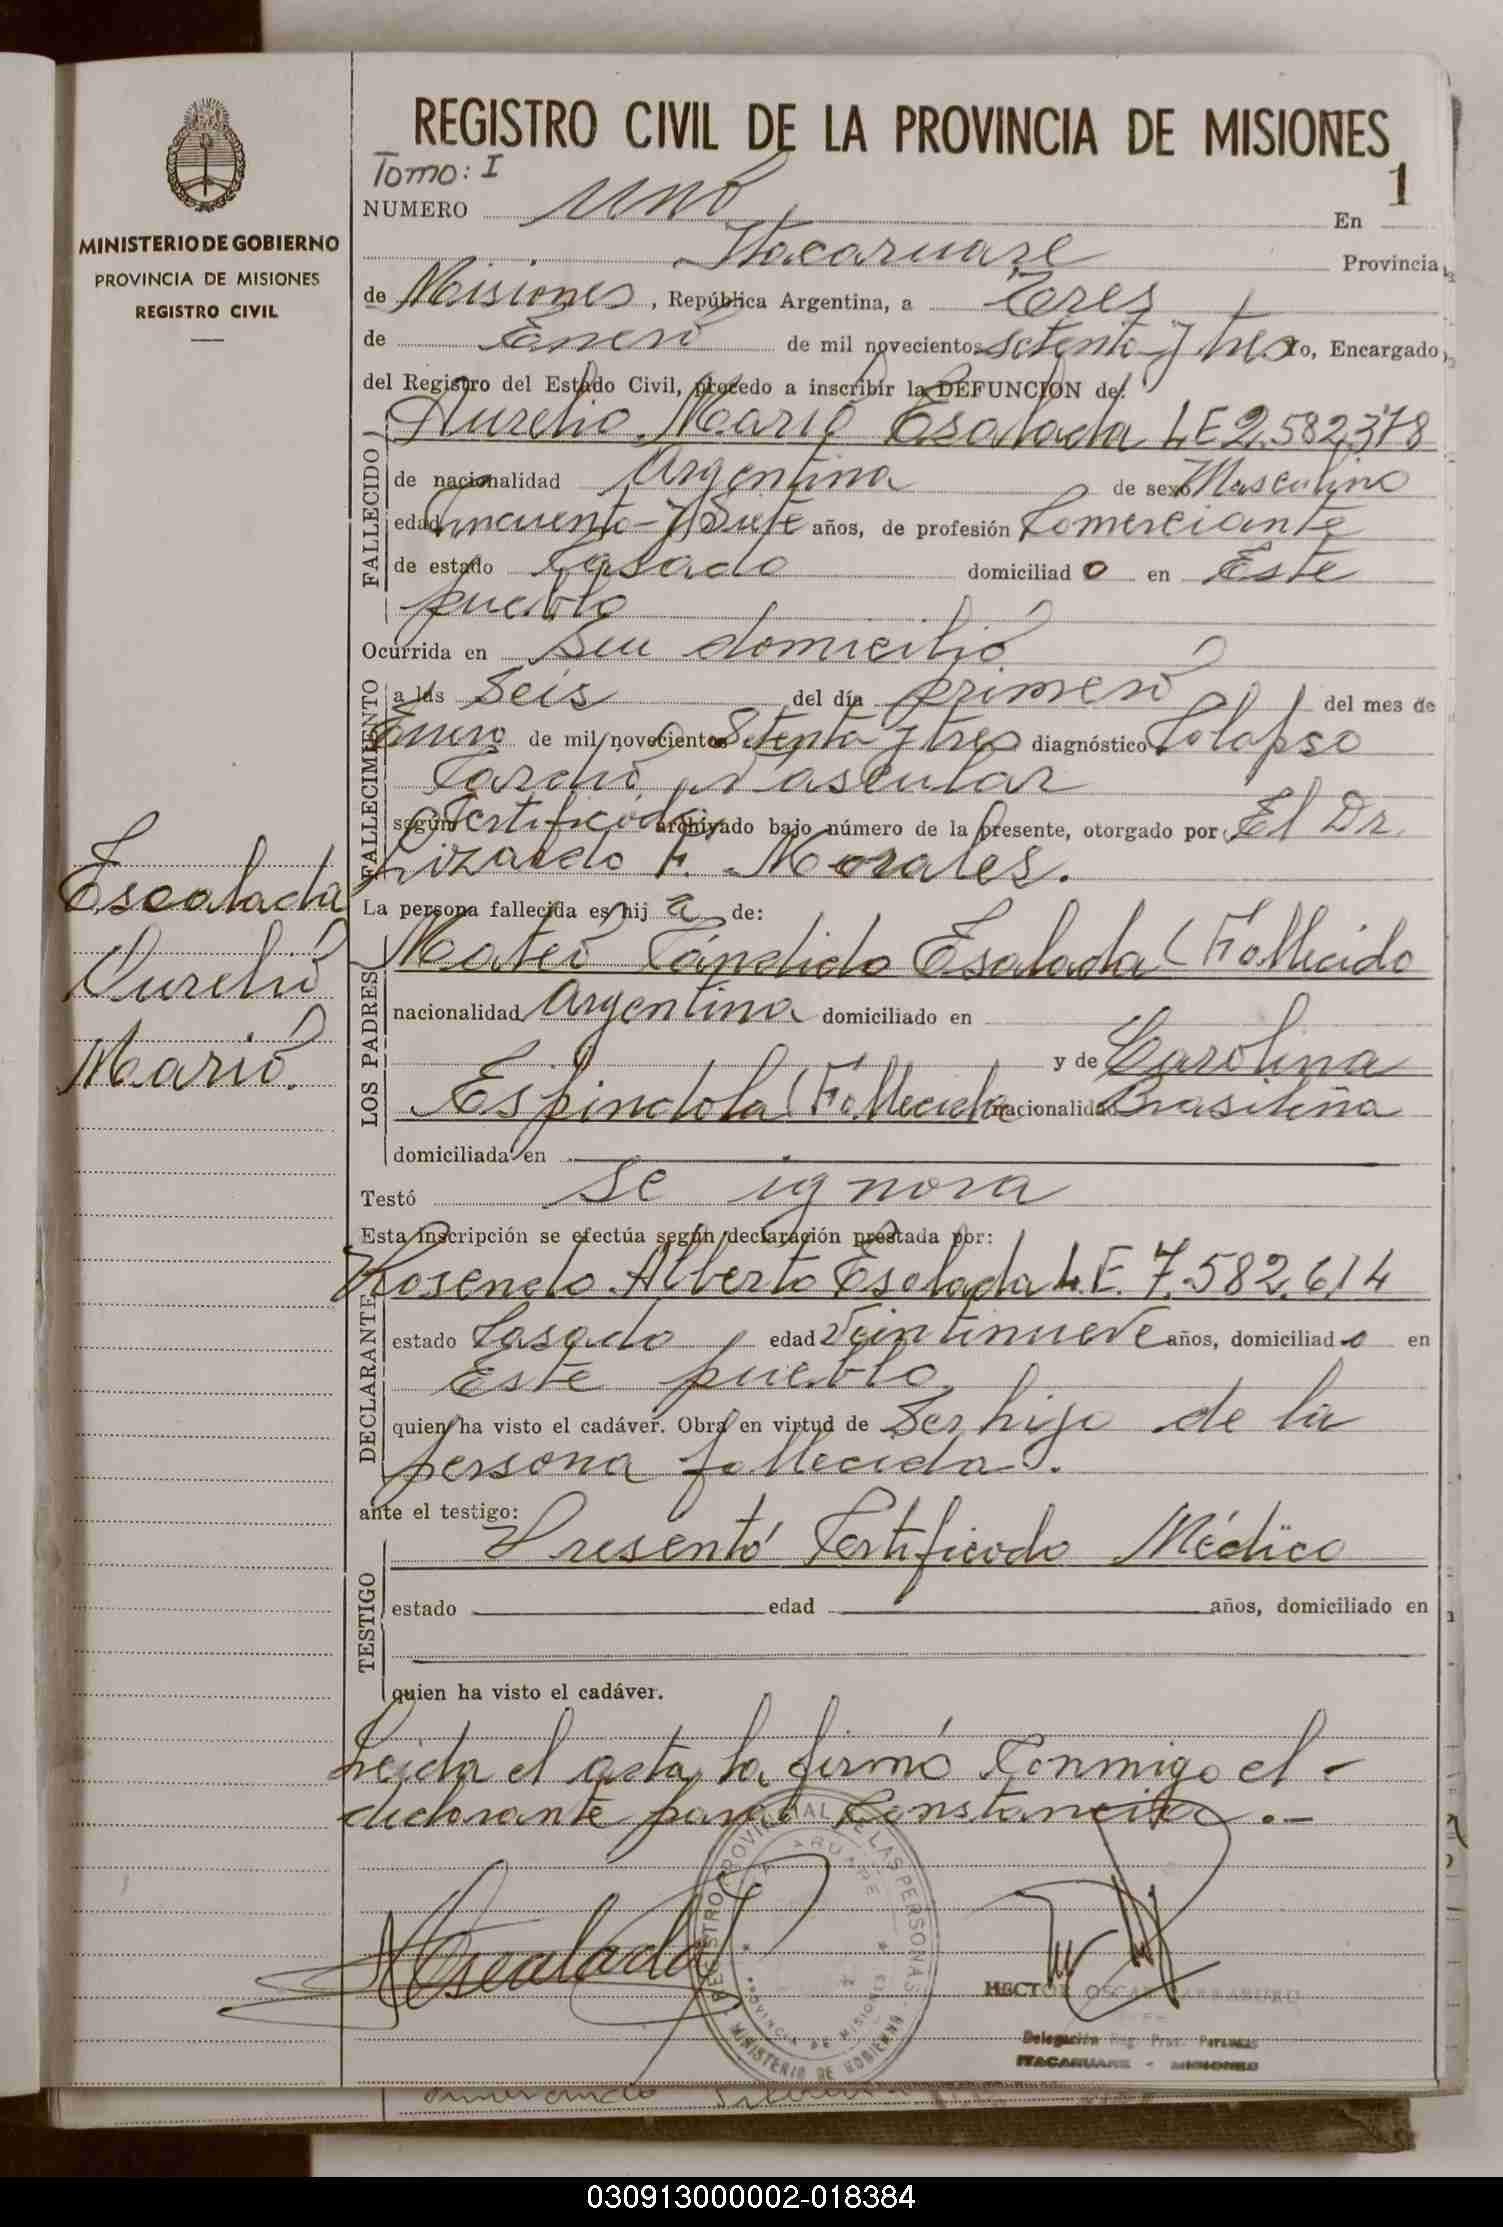 REGISTRO CIVIL DE LA PROVINCIA DE MISIONES
Tomo: I
1
NUMERO uno En
Itacaruare Provincia
de Misiones, República Argentina, a Tres
de Enero de mil novecientos setenta y tres Yo, Encargado,
del Registro del Estado Civil, procedo a inscribir la DEFUNCION de:
Aurelio Mario Escalada LE 2.582.378
FALLECIDO
de nacionalidad Argentina de sexo Masculino
edad Cincuenta y Siete años, de profesión Comerciante
de estado Casado domiciliado en Este
pueblo
Ocurrida en Su domicilio
FALLECIMIENTO
a las Seis del día primero del mes de
Enero de mil novecientos Setenta y tres diagnóstico Colapso
Cardio Vascular
según Certificado archivado bajo número de la presente, otorgado por El Dr.
Lizardo F. Morales.
La persona fallecida es hij a de:
LOS PADRES
Mateo Cándido Esalada (Fallecido
nacionalidad Argentina domiciliado en
y de Carolina
Espindola (Fallecida nacionalidad Brasileña
domiciliada en
Testó Se ignora
Esta inscripción se efectúa según declaración prestada por:
DECLARANTE
Rosendo Alberto Esalada L.E. 7.582.614
estado Casado edad Veintinueve años, domiciliado en
Este pueblo
quien ha visto el cadáver. Obra en virtud de Ser hijo de la
persona fallecida.
ante el testigo:
TESTIGO
Presentó Certificado Médico
estado edad años, domiciliado en
quien ha visto el cadáver.
Leida el acta, la firmó Conmigo el -
declarante para Constancia .-
Escalada
REGISTRO PROVINCIAL DE LAS PERSONAS
PROVINCIA DE MISIONES
MINISTERIO DE GOBIERNO
HECTOR OSCAR
Delegación Reg. Prov. Personas
ITACARUARE - MISIONES
MINISTERIO DE GOBIERNO
PROVINCIA DE MISIONES
REGISTRO CIVIL
Escalada
Aurelio
Mario.
030913000002-018384